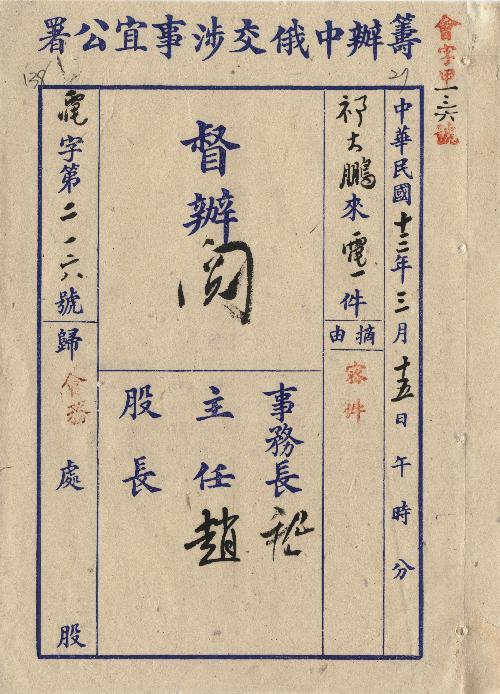 籌辦中俄交涉事宜公署
會字甲一三六號
27
138
中華民國十三年三月十五日午時分
祁大鵬來電一件
摘由
密件
督辦
閱
事務長
主任趙
股長
電字第二一六號歸會務處股